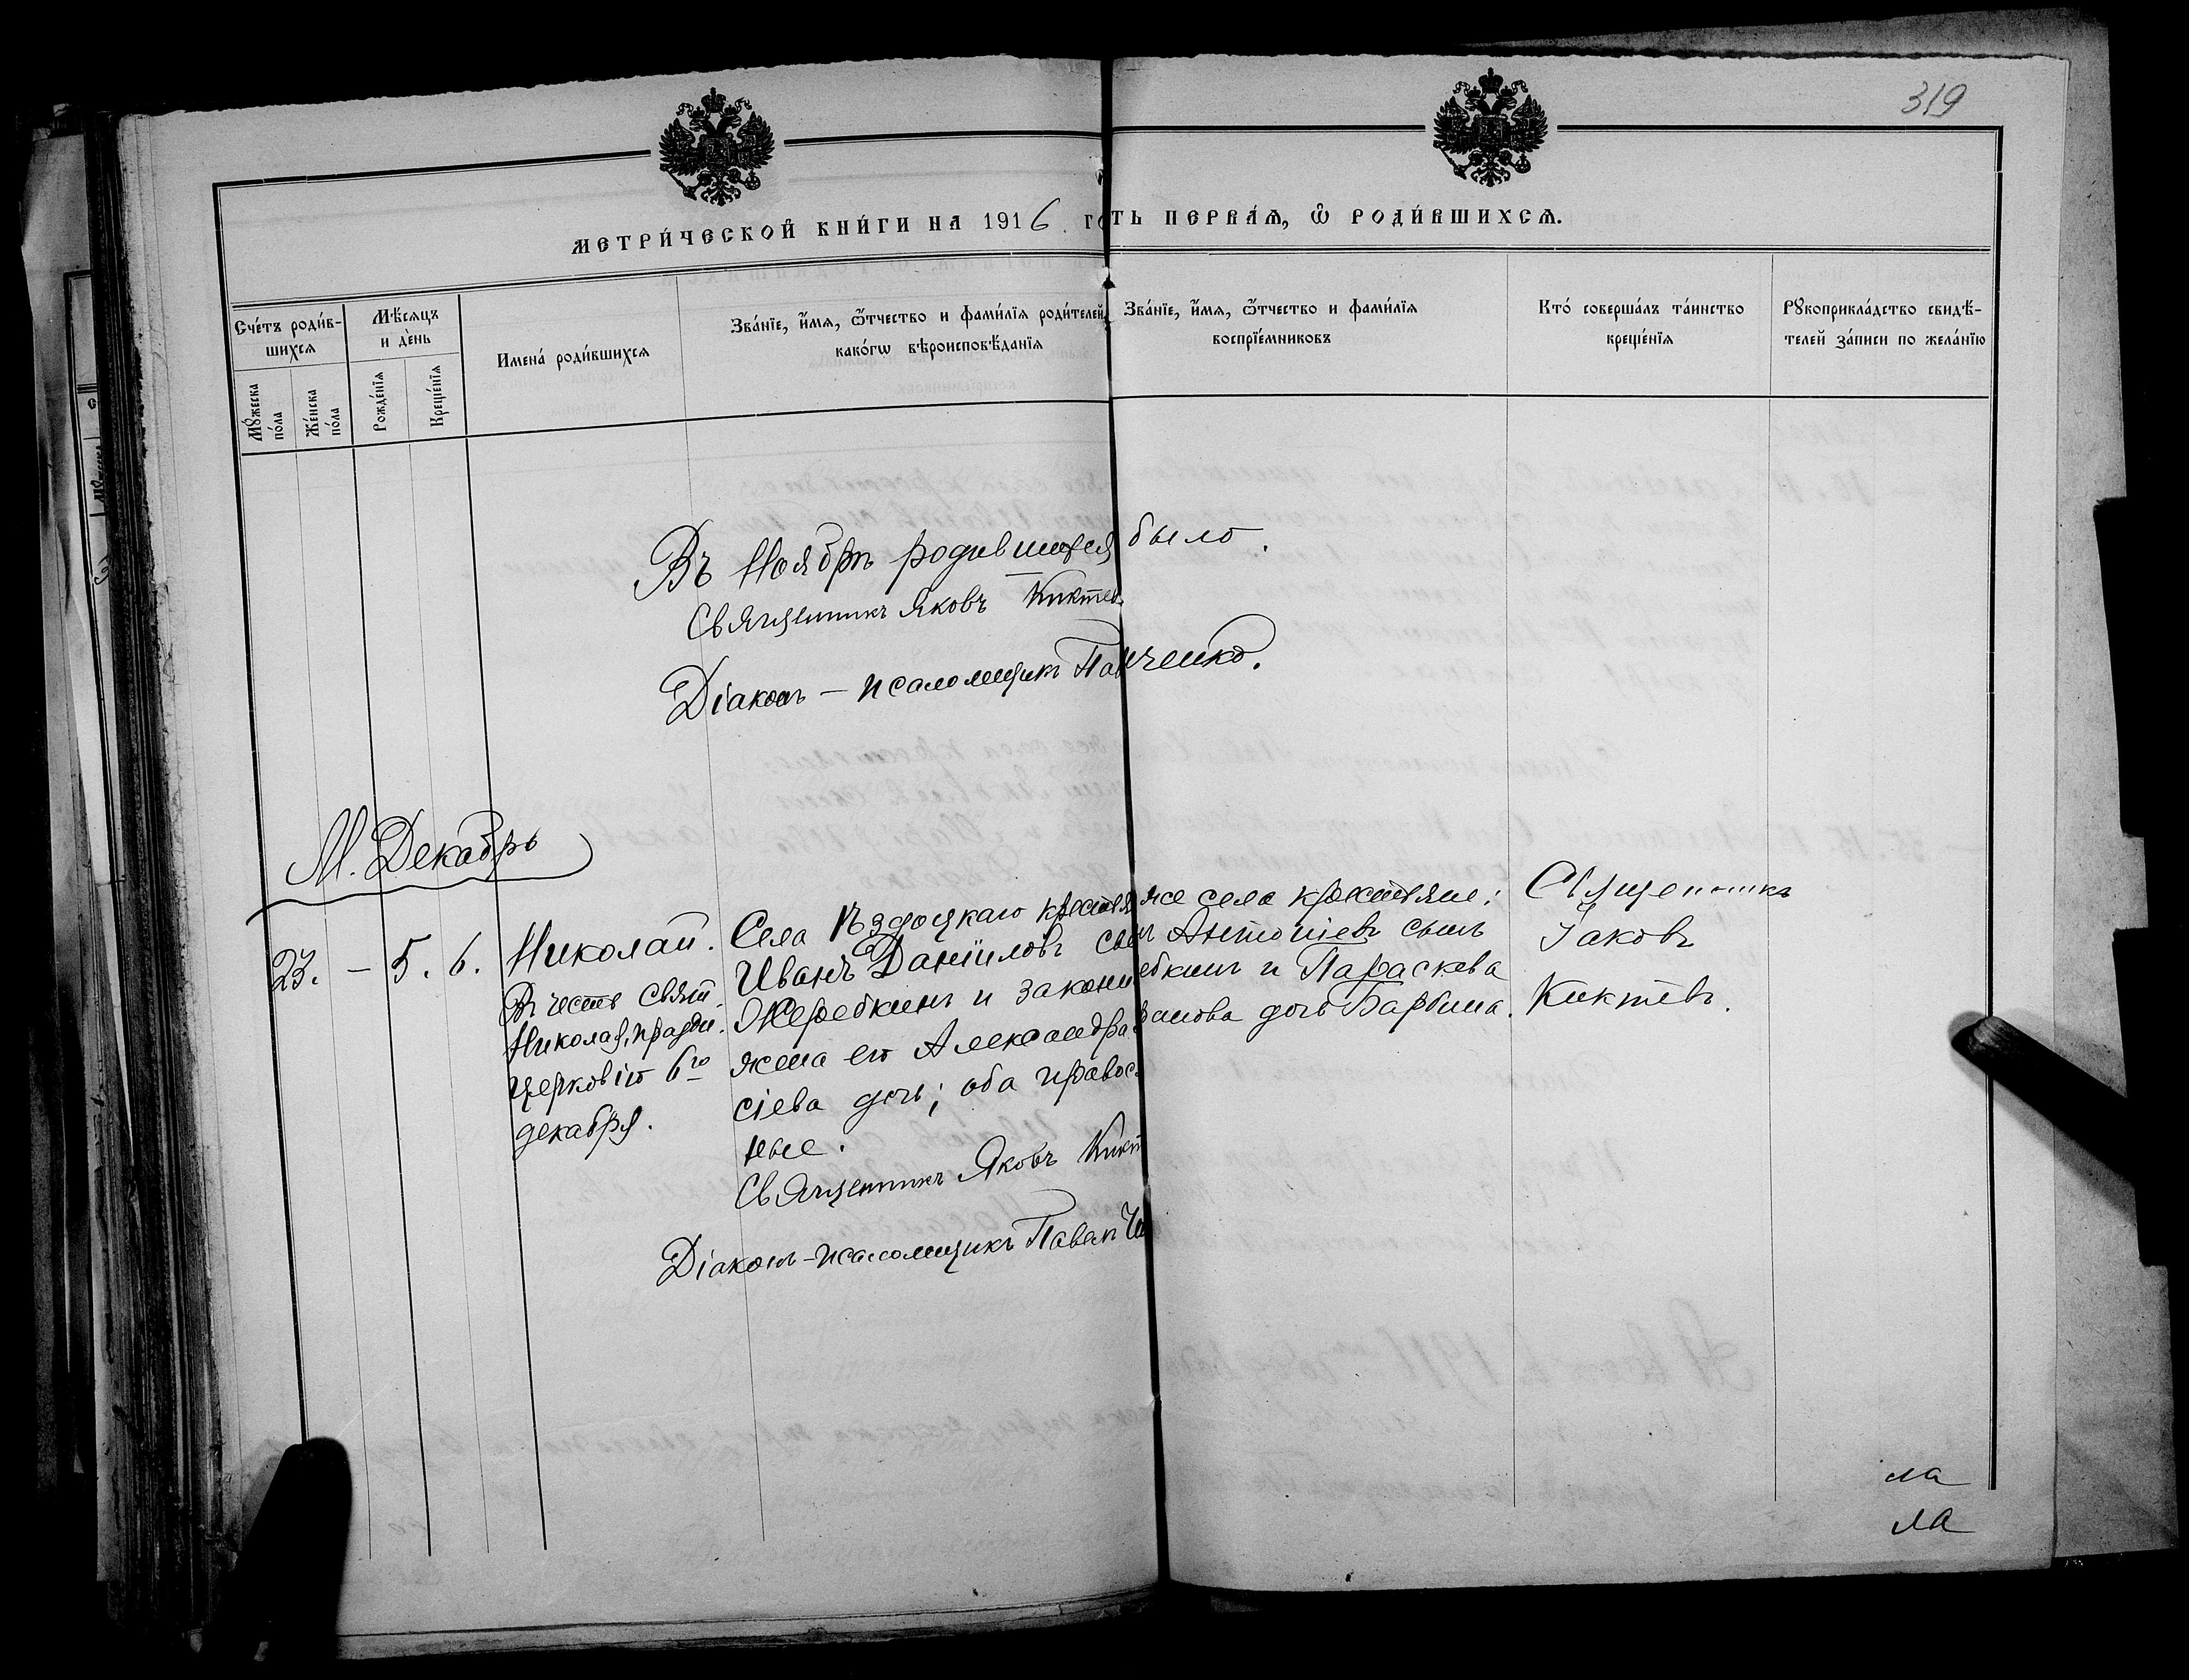 319
МЕТРИ́ЧЕСКОЙ КНИ́ГИ НА 1916 ГО
ТЬ ПЕРВА́Ѧ, Ѿ РОДИ́ВШИХСѦ.
Сче́тъ роди́в-
шихсѧ
Мꙋ́жеска
по́ла
Же́нска
по́ла
Мѣ́сѧцъ
и де́нь
Рожде́нїѧ
Креще́нїѧ
Имена̀ роди́вшихсѧ
Зва́нїе, и҆́мѧ, ѻ҆́тчество и фами́лїѧ роди́телей,
како́гѡ вѣроисповѣ́данїѧ
Зва́нїе, и҆́мѧ, ѻ҆́тчество и фами́лїѧ
воспрїе́мниковъ
Кто́ соверша́лъ та́инство
креще́нїѧ
Рꙋкоприкла́дство свидѣ́-
телей за́писи по жела́нїю
Въ Ноябрѣ родившихся было.
Священникъ Яковъ Киктев
Діаконъ - псаломщикъ Панченко.
М. Декабрь
23. - 5. 6.
Николай.
Въ честь Свят.
Николая, праздн.
Церковію 6го
декабря.
Села Ѣздоцкаго крестья
Иванъ Даніиловъ сынъ
Жеребкинъ и законн
жена его Александра
сіева дочь; оба правос
ные.
Священникъ Яковъ Кикт
Діаконъ-псаломщикъ Павелъ
же села крестьяне:
Антоніевъ сынъ
ебкинъ и Параскева
анова дочь Барбина.
Священникъ
Іаковъ
Киктевъ.
ла
ла